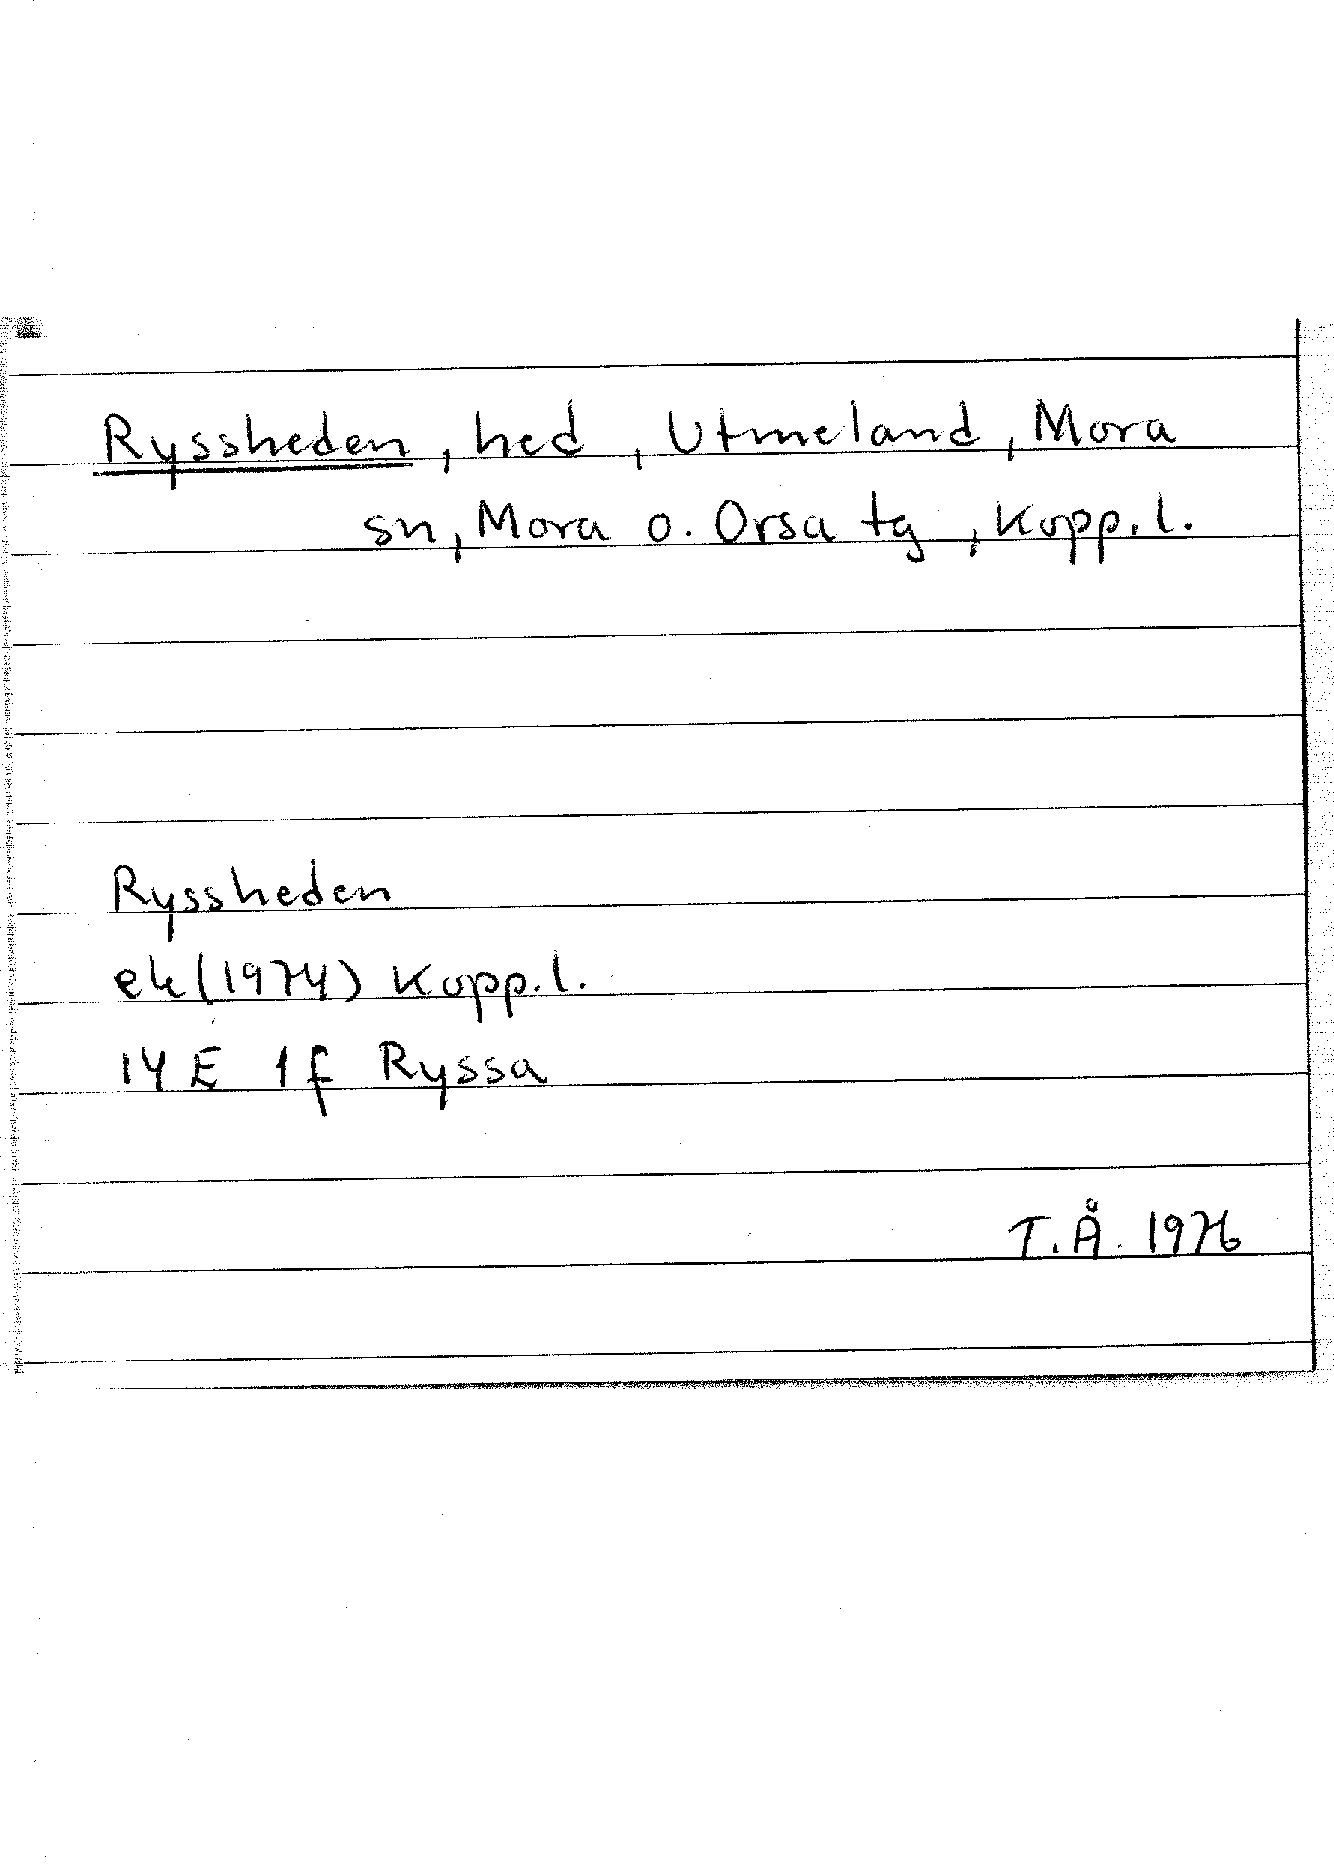 Ryssheden, hed, Utmeland, Mora
sn, Mora o. Orsa tg, Kopp. l.
Ryssheden
ek (1974) Kopp. l.
14 E 1 f Ryssa
T. Å. 1976